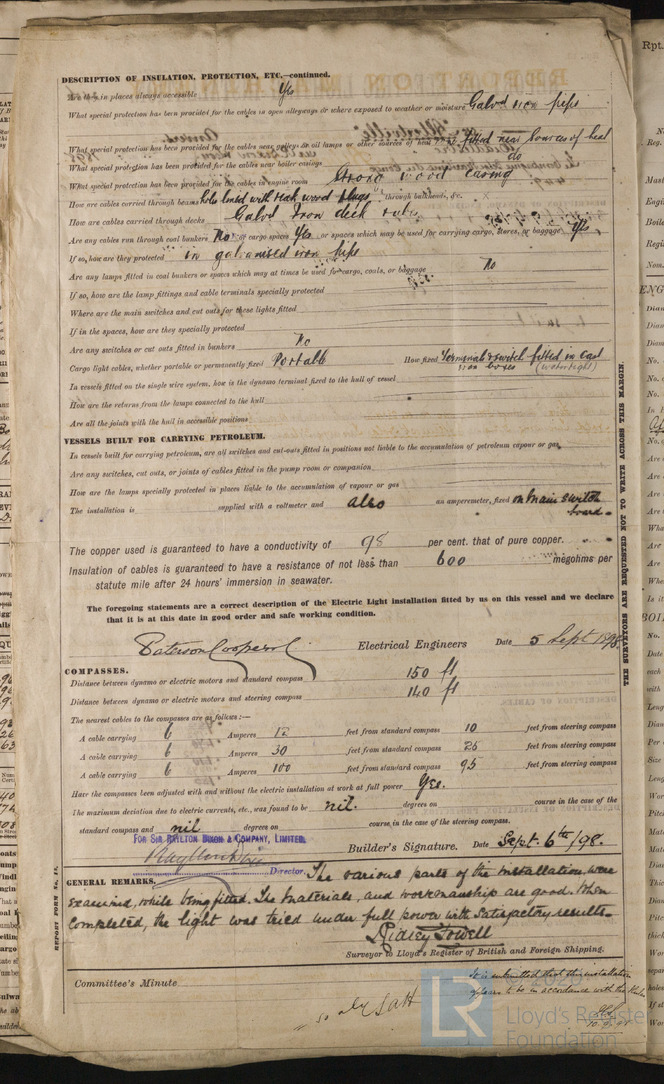 DESCRIPTION OF INSULATION, PROTECTION, ETC.—continued.
Are they in places always accessible Yes
What special protection has been provided for the cables in open alleyways or where exposed to weather or moisture Galvd iron pipes
What special protection has been provided for the cables near galleys or oil lamps or other sources of heat none fitted near Sources of heat
What special protection has been provided for the cables near boiler casings do
What special protection has been provided for the cables in engine room Strong wood casing
How are cables carried through beams holes lined with teak wood plugs through bulkheads, &c.
How are cables carried through decks Galvd Iron deck tubes
Are any cables run through coal bunkers No or cargo spaces Yes or spaces which may be used for carrying cargo, stores, or baggage Yes,
If so, how are they protected in galvanised iron pipes
Are any lamps fitted in coal bunkers or spaces which may at times be used for cargo, coals, or baggage No
If so, how are the lamp fittings and cable terminals specially protected
Where are the main switches and cut outs for these lights fitted
If in the spaces, how are they specially protected
Are any switches or cut outs fitted in bunkers No
Cargo light cables, whether portable or permanently fixed Portable How fixed Terminals & switch fitted in cast
iron boxes (watertight)
In vessels fitted on the single wire system, how is the dynamo terminal fixed to the hull of vessel
How are the returns from the lamps connected to the hull
Are all the joints with the hull in accessible positions
VESSELS BUILT FOR CARRYING PETROLEUM.
In vessels built for carrying petroleum, are all switches and cut-outs fitted in positions not liable to the accumulation of petroleum vapour or gas
Are any switches, cut outs, or joints of cables fitted in the pump room or companion
How are the lamps specially protected in places liable to the accumulation of vapour or gas
The installation is supplied with a voltmeter and also an amperemeter, fixed on main switch
board.
The copper used is guaranteed to have a conductivity of 98 per cent. that of pure copper.
Insulation of cables is guaranteed to have a resistance of not less than 600 megohms per
statute mile after 24 hours' immersion in seawater.
The foregoing statements are a correct description of the Electric Light installation fitted by us on this vessel and we declare
that it is at this date in good order and safe working condition.
Paterson Cooper & Co Electrical Engineers Date 5 Sept 1898
COMPASSES.
Distance between dynamo or electric motors and standard compass 150 ft
Distance between dynamo or electric motors and steering compass 140 ft
The nearest cables to the compasses are as follows:—
A cable carrying 6 Amperes 12 feet from standard compass 10 feet from steering compass
A cable carrying 6 Amperes 30 feet from standard compass 25 feet from steering compass
A cable carrying 6 Amperes 100 feet from standard compass 95 feet from steering compass
Have the compasses been adjusted with and without the electric installation at work at full power Yes.
The maximum deviation due to electric currents, etc., was found to be nil. degrees on course in the case of the
standard compass and nil degrees on course in the case of the steering compass.
FOR SIR RAYLTON DIXON & COMPANY, LIMITED.
Builder's Signature. Date Sept. 6th /98.
Director.
GENERAL REMARKS. The various parts of the installation were
examined, while being fitted. The materials, and workmanship are good. When
completed, the light was tried under full power with satisfactory results.
Ridley Howell
Surveyor to Lloyd's Register of British and Foreign Shipping.
Committee's Minute
It is submitted that this installation
appears to be in accordance with the Rules
10.9.98
THE SURVEYORS ARE REQUESTED NOT TO WRITE ACROSS THIS MARGIN.
REPORT FORM No. 13.
Lloyd's Register
Foundation
LR